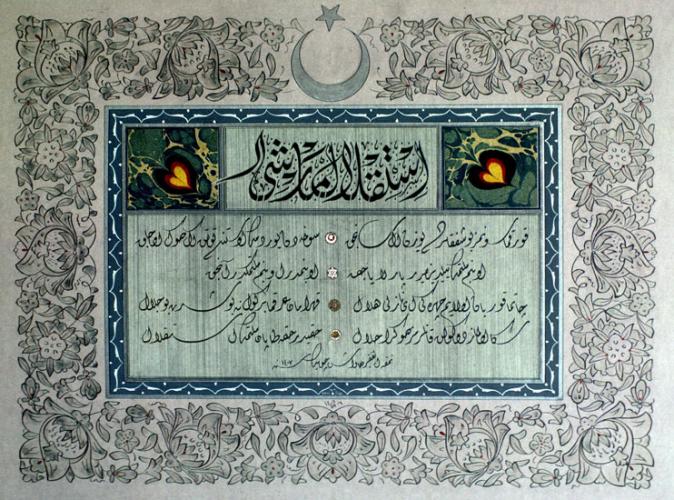 استقلال مارشی
قورقما سونمز بو شفقلرده یوزن آل سنجاق سونمه‌دن یوردمك اوستنده توتن اك صوك اوجاق
او بنم ملتمك ییلدیزیدر پارلایاجق او بنمدر او بنم ملتمكدر آنجق
چاتما قوربان اولایم چهره‌كی ای نازلی هلال قهرمان عرقمه بر كول نه بو شدت بو جلال
سكا اولماز دوكولن قانلرمز صوكرا حلال حقیدر حقه طاپان ملتمك استقلال